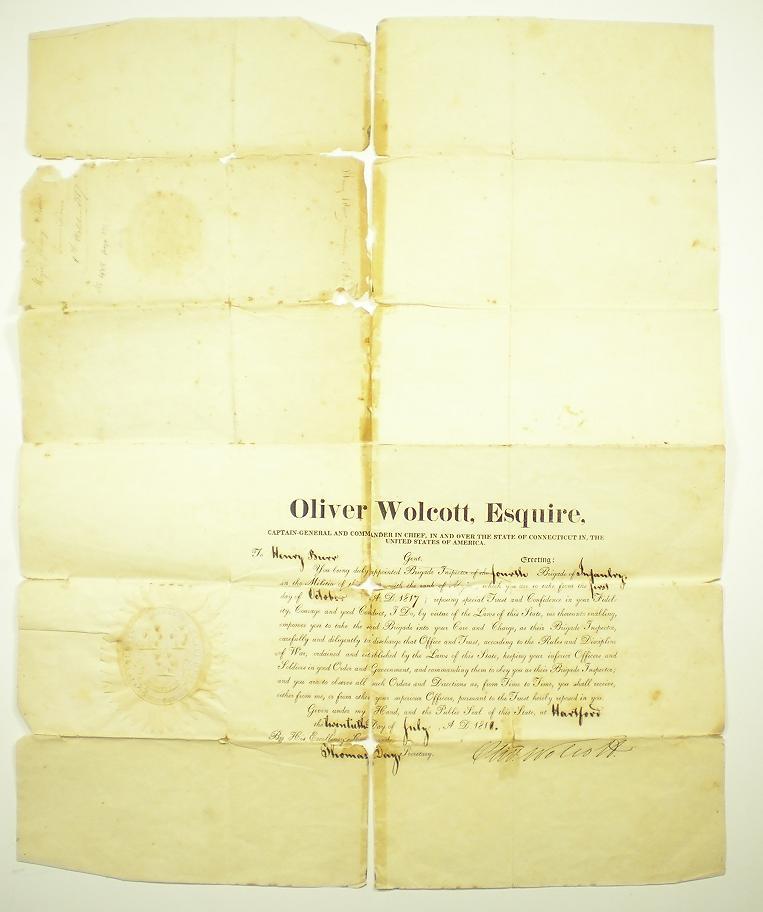 Oliver Wolcott, Esquire,
CAPTAIN-GENERAL AND COMMANDER IN CHIEF, IN AND OVER THE STATE OF CONNECTICUT IN, THE
UNITED STATES OF AMERICA.
To Henry Burr Gent. Greeting:
You being duly appointed Brigade Inspector of the fourth Brigade of Infantry,
in the Militia of with the rank of which you are to take from the first
day of October A. D. 1817; reposing special Trust and Confidence in your Fidel-
ity, Courage and good Conduct, I Do, by virtue of the Laws of this State, me thereunto enabling,
empower you to take the said Brigade into your Care and Charge, as their Brigade Inspector,
carefully and diligently to discharge that Office and Trust, according to the Rules and Discipline
of War, ordained and established by the Laws of this State, keeping your inferior Officers and
Soldiers in good Order and Government, and commanding them to obey you as their Brigade Inspector;
and you are to observe all such Orders and Directions as, from Time to Time, you shall receive,
either from me, or from other your superiour Officers, pursuant to the Trust hereby reposed in you.
Given under my Hand, and the Public Seal of this State, at Hartford
the twentieth Day of July, A. D. 1818.
By His Excellency's
Thomas Day, Secretary.
Oliv. Wolcott